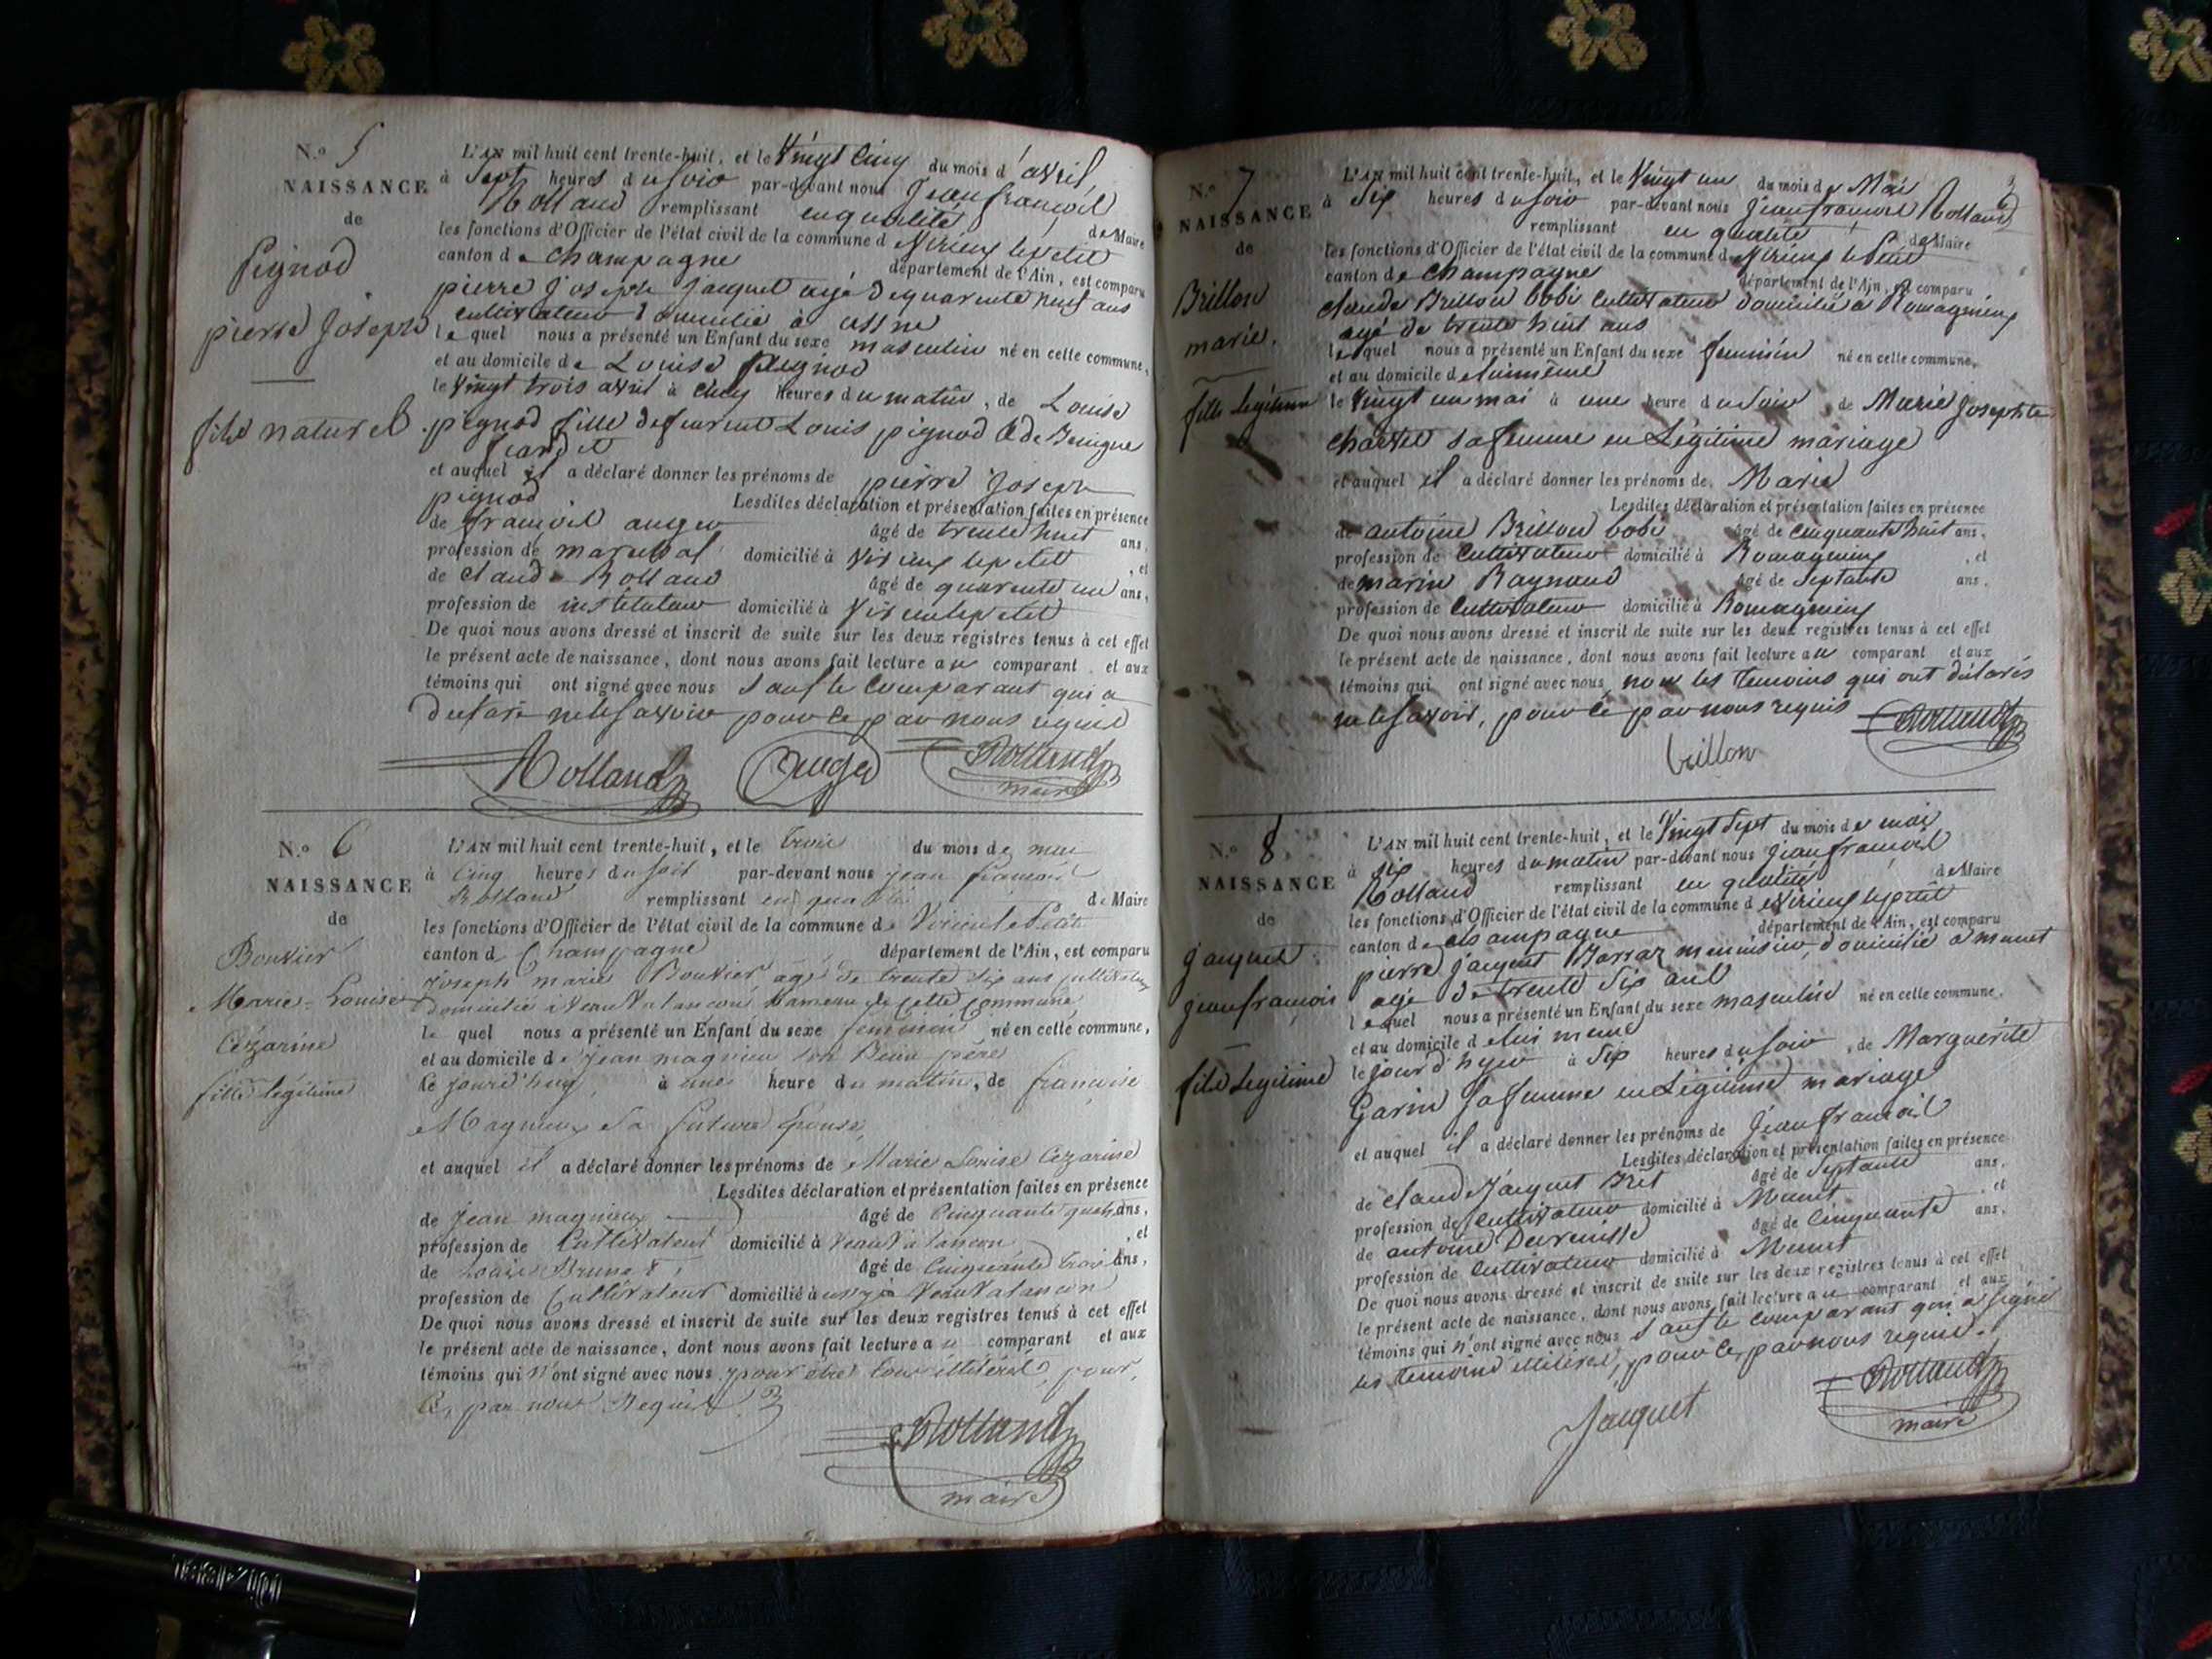 N.º 5
NAISSANCE
de
Pignod
pierre Joseph
fils naturel
L'AN mil huit cent trente-huit, et le Vingt Cinq du mois d'avril
à Sept heures du soir par-devant nous Jean françois
Rolland remplissant en qualité de Maire
les fonctions d'Officier de l'état civil de la commune de Virieux le petit
canton de Champagne département de l'Ain, est comparu
pierre Joseph Jacquet agé de quarante neuf ans
cultivateur domicilié à
lequel nous a présenté un Enfant du sexe masculin né en cette commune,
et au domicile de Louise pignod
le Vingt trois avril à cinq heures du matin, de Louise
pignod fille de Louis pignod & de Benigne
et auquel il a déclaré donner les prénoms de pierre Joseph
pignod Lesdites déclaration et présentation faites en présence
de françois auger âgé de trente huit ans,
profession de marechal domicilié à Virieux le petit, et
de Claude Rolland âgé de quarante un ans,
profession de instituteur domicilié à Virieux le petit
De quoi nous avons dressé et inscrit de suite sur les deux registres tenus à cet effet
le présent acte de naissance, dont nous avons fait lecture au comparant et aux
témoins qui ont signé avec nous sauf le Comparant qui a
déclaré ne le savoir pour ce par nous requis
Rolland Auger Rolland
maire
N.º 6
NAISSANCE
de
Bouvier
Marie-Louise
Cézarine
fille légitime
L'AN mil huit cent trente-huit, et le trois du mois de mai
à Cinq heures du soir par-devant nous jean françois
Rolland remplissant en qualité de Maire
les fonctions d'Officier de l'état civil de la commune de Virieu le Petit
canton de Champagne département de l'Ain, est comparu
Joseph marie Bouvier agé de trente six ans cultivateur
domicilié à hameau de cette commune
le quel nous a présenté un Enfant du sexe feminin né en cette commune,
et au domicile de Jean magnieux son Beau pére
le jourd'huy à une heure du matin, de françoise
Magnieux Sa future Epouse
et auquel il a déclaré donner les prénoms de Marie Louise Cézarine
Lesdites déclaration et présentation faites en présence
de Jean magnieux âgé de Cinquante ans,
profession de Cultivateur domicilié à, et
de Louis Brunet âgé de Cinquante trois ans,
profession de Cultivateur domicilié à
De quoi nous avons dressé et inscrit de suite sur les deux registres tenus à cet effet
le présent acte de naissance, dont nous avons fait lecture au comparant et aux
témoins qui n'ont signé avec nous pour être tous illitérés, pour
Ce, par nous Requis
Rolland
maire
N.º 7
NAISSANCE
de
Brillon
marie.
fille Légitime
L'AN mil huit cent trente-huit, et le Vingt un du mois de Mai
à Six heures du soir par-devant nous Jean françois Rolland
remplissant en qualité de Maire
les fonctions d'Officier de l'état civil de la commune de Virieux le Petit
canton de Champagne département de l'Ain, est comparu
claude Brillon bobi Cultivateur domicilié à Romagnieux
agé de trente huit ans
lequel nous a présenté un Enfant du sexe feminin né en cette commune,
et au domicile de lui même
le Vingt un mai à une heure du soir, de Marie Josephte
Charvet sa femme en Légitime mariage
et auquel il a déclaré donner les prénoms de Marie
Lesdites déclaration et présentation faites en présence
de antoine Brillon bobi âgé de Cinquante huit ans,
profession de Cultivateur domicilié à Romagnieux, et
de marin Raynaud âgé de Septante ans,
profession de Cultivateur domicilié à Romagnieux
De quoi nous avons dressé et inscrit de suite sur les deux registres tenus à cet effet
le présent acte de naissance, dont nous avons fait lecture au comparant et aux
témoins qui ont signé avec nous, non les temoins qui ont déclarés
ne le savoir, pour ce par nous requis Rolland
brillon
N.º 8
NAISSANCE
de
jacquet
jean françois
fils Légitime
L'AN mil huit cent trente-huit, et le Vingt Sept du mois de mai
à six heures du matin par-devant nous Jean françois
Rolland remplissant en qualité de Maire
les fonctions d'Officier de l'état civil de la commune de Virieux le petit
canton de champagne département de l'Ain, est comparu
pierre jacquet menuisier, domicilié à munet
agé de trente six ans
lequel nous a présenté un Enfant du sexe masculin né en cette commune,
et au domicile de lui meme
le jour d'hyer à Six heures du soir, de Marguerite
Garin sa femme en Légitime mariage
et auquel il a déclaré donner les prénoms de Jean françois
Lesdites déclaration et présentation faites en présence
de Claude Jacquet Bret âgé de Septante ans,
profession de Cultivateur domicilié à Munet, et
de antoine âgé de Cinquante ans,
profession de Cultivateur domicilié à Munet
De quoi nous avons dressé et inscrit de suite sur les deux registres tenus à cet effet
le présent acte de naissance, dont nous avons fait lecture au comparant et aux
témoins qui n'ont signé avec nous sauf le comparant qui a signé
les temoins illitérés, pour ce, par nous requis.
Jacquet Rolland
maire